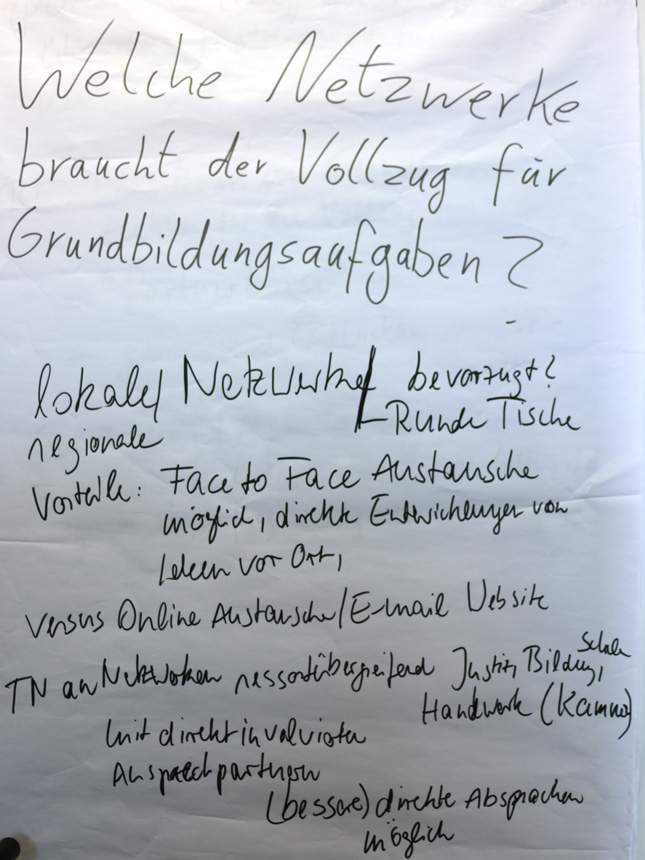 Welche Netzwerke
braucht der Vollzug für
Grundbildungsaufgaben?
lokale/ Netzwerke/ bevorzugt?
regionale
Runde Tische
Vorteile: Face to Face Austausche
möglich, direkte Entwicklungen von
Ideen vor Ort,
versus Online Austausche/E-mail Website
TN an Netzwerken ressortübergreifend Justiz, Bildung, Schule
Handwerk (Kammer)
mit direkt involvierten
Ansprechpartnern
(bessere) direkte Absprachen
möglich